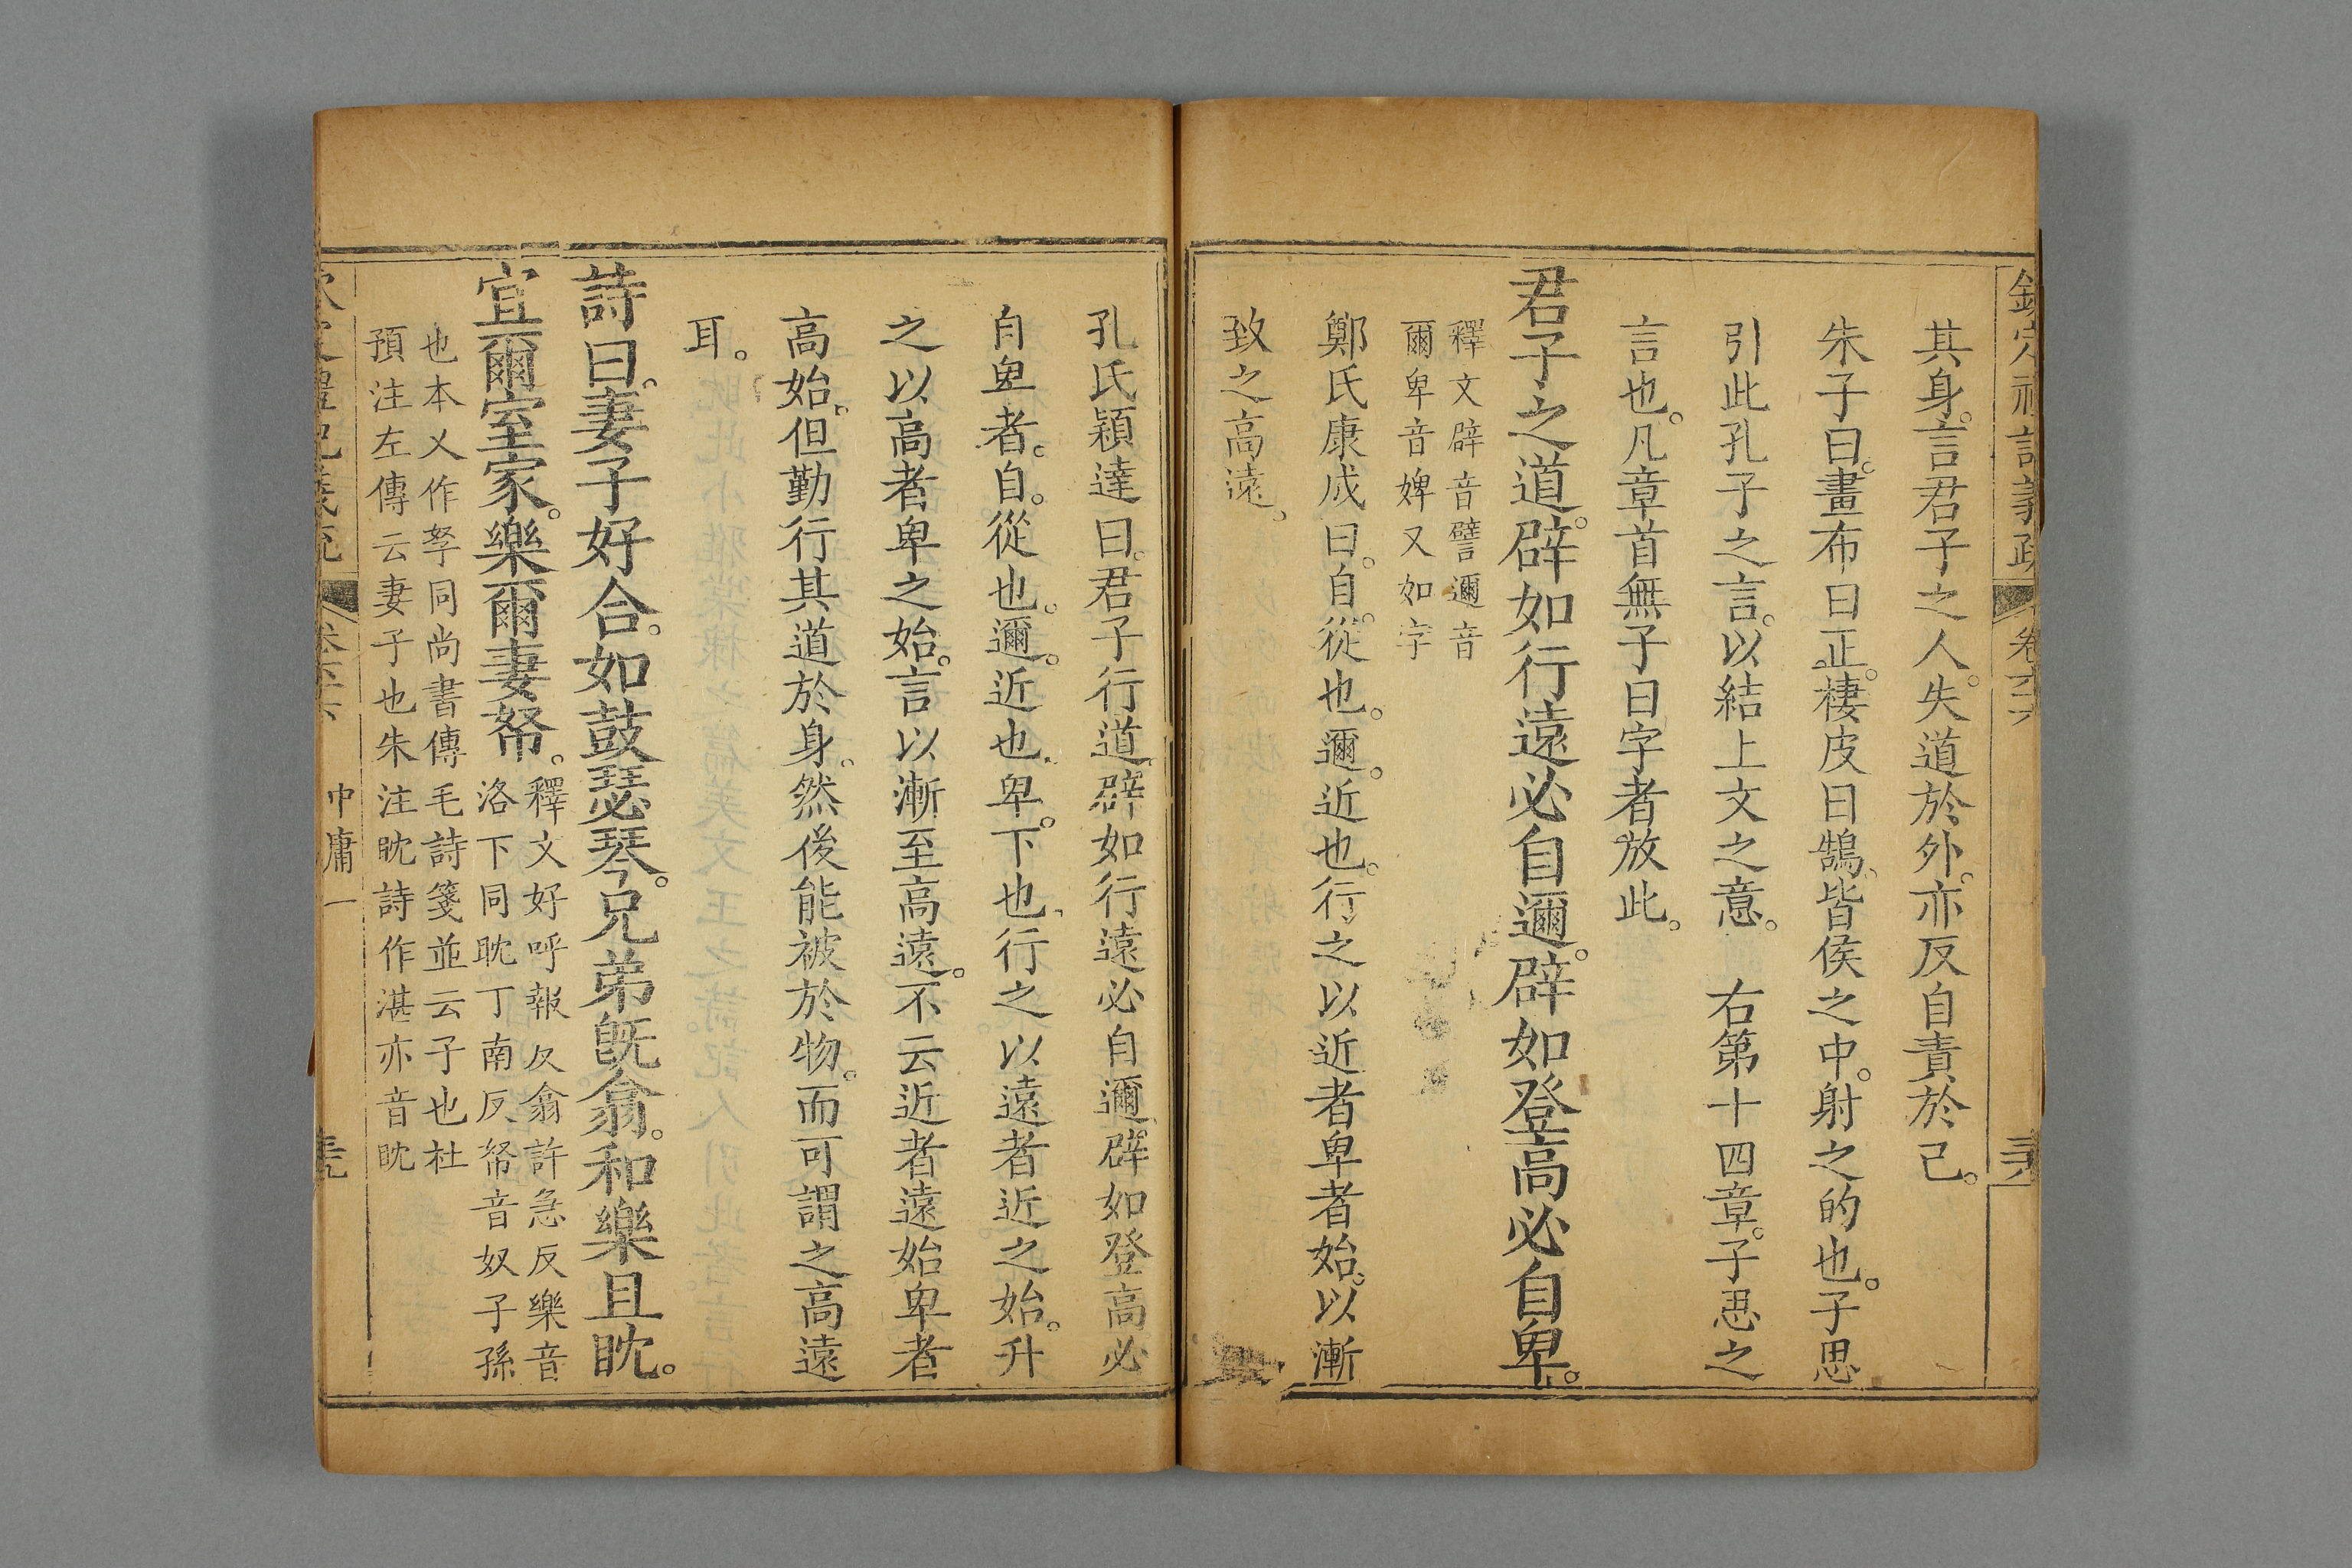 欽定禮記義疏 卷六六
其身。言君子之人。失道於外。亦反自責於己。
朱子曰。畫布曰正。棲皮曰鵠。皆侯之中。射之的也。子思
引此孔子之言。以結上文之意。 右第十四章。子思之
言也。凡章首無子曰字者放此。
君子之道。辟如行遠必自邇。辟如登高必自卑。
釋文辟音譬邇音
爾卑音婢又如字
鄭氏康成曰。自。從也。邇。近也。行之以近者卑者始。以漸
致之高遠。
孔氏穎達曰。君子行道。辟如行遠必自邇。辟如登高必
自卑者。自。從也。邇。近也。卑。下也。行之以遠者近之始。升
之以高者卑之始。言以漸至高遠。不云近者遠始卑者
高始。但勤行其道於身。然後能被於物。而可謂之高遠
耳。
詩曰。妻子好合。如鼓瑟琴。兄弟旣翕。和樂且耽。
宜爾室家。樂爾妻帑。
釋文好呼報反翕許急反樂音
洛下同耽丁南反帑音奴子孫
也本乂作孥同尚書傳毛詩箋並云子也杜
預注左傳云妻子也朱注耽詩作湛亦音耽
中庸一